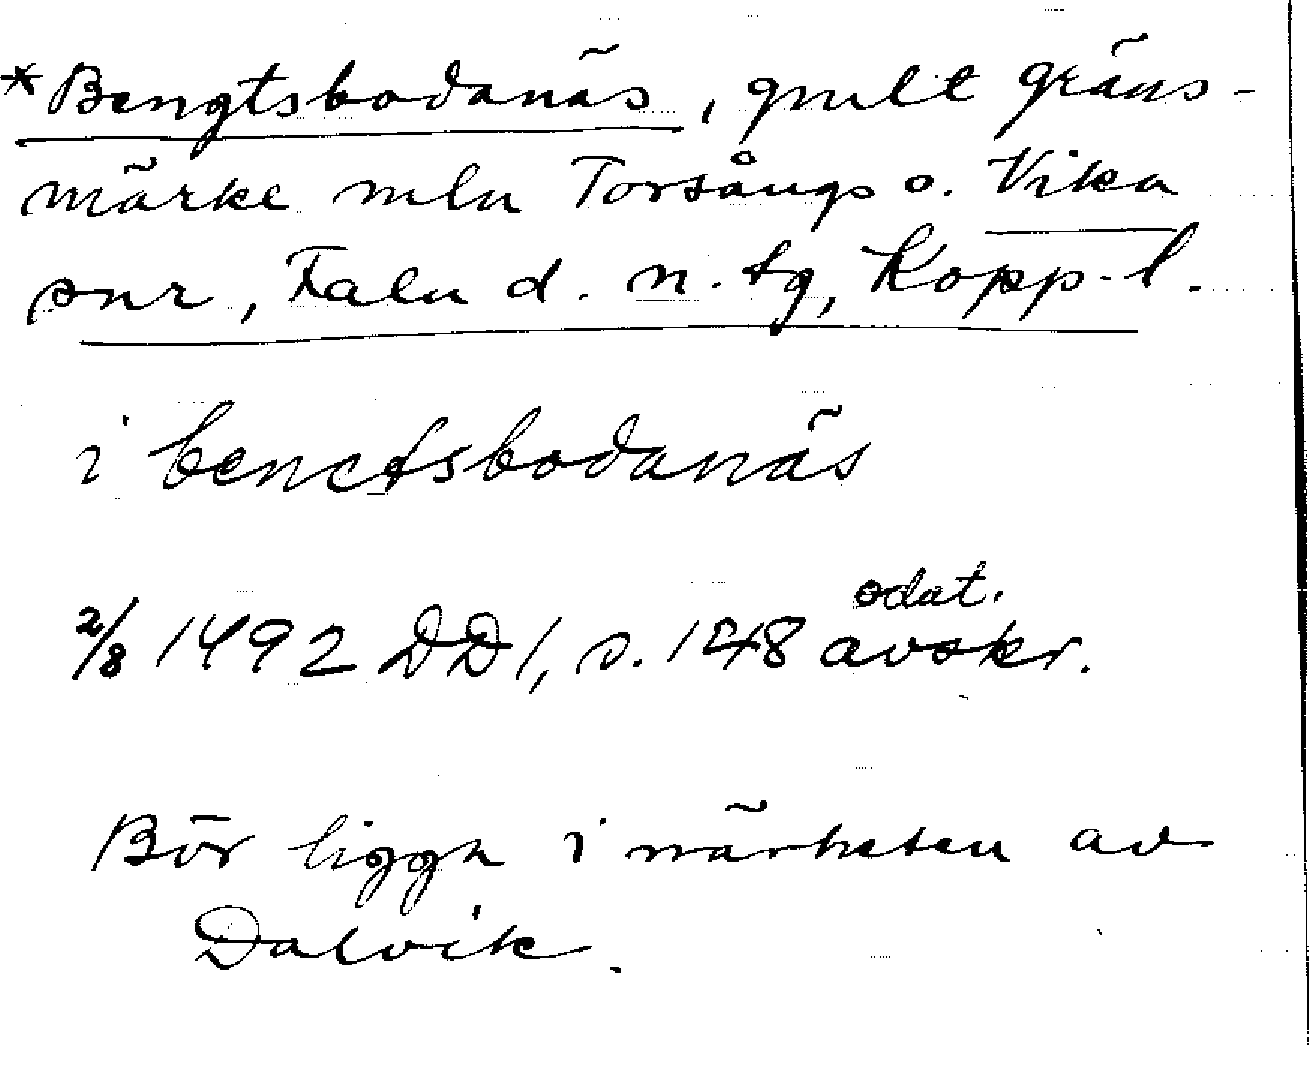 *Bengtsbodanäs, gmlt gräns-
märke mln Torsångs o. Vika
snr, Falu d. n. tg, Kopp. l.
i benctsbodanäs
odat.
2/8 1492 DD 1, s. 148 avskr.
Bör ligga i närheten av
Dalvik.